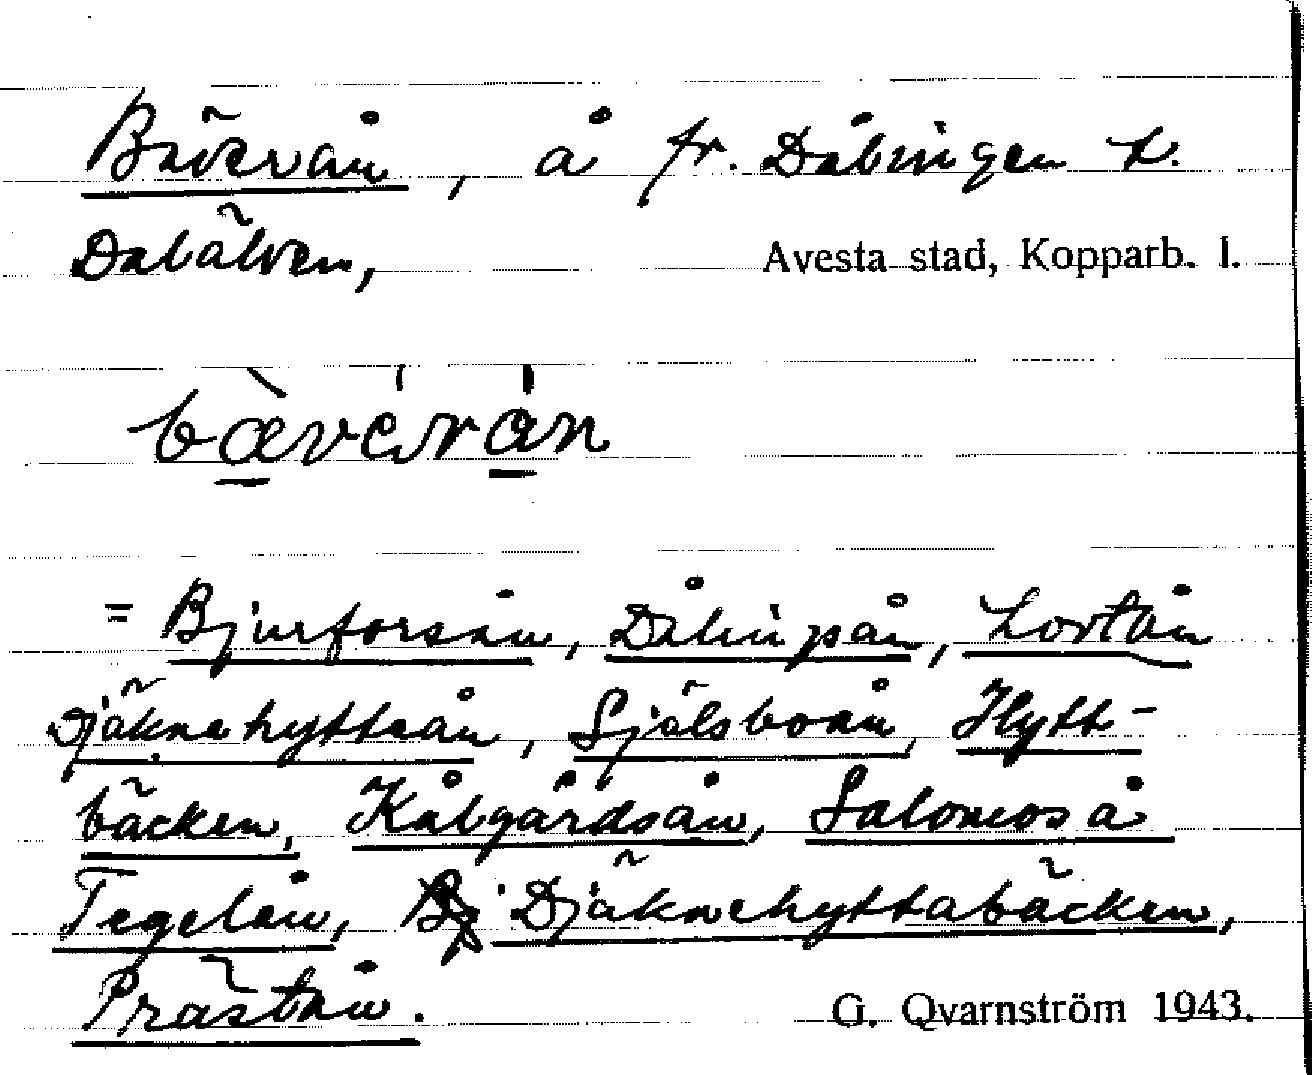 Bäverån, å fr. Dälvingen t.
Dalälven, Avesta stad, Kopparb. l.
bæ̀vérán
= Bjursforsån, Dålingsån, Lortån
Djäknehytteån, Själsboån, Hytt-
bäcken, Kålgårdsån, Salomoså
Tegelån, Djäknehyttabäcken,
Prästån.
G. Qvarnström 1943.